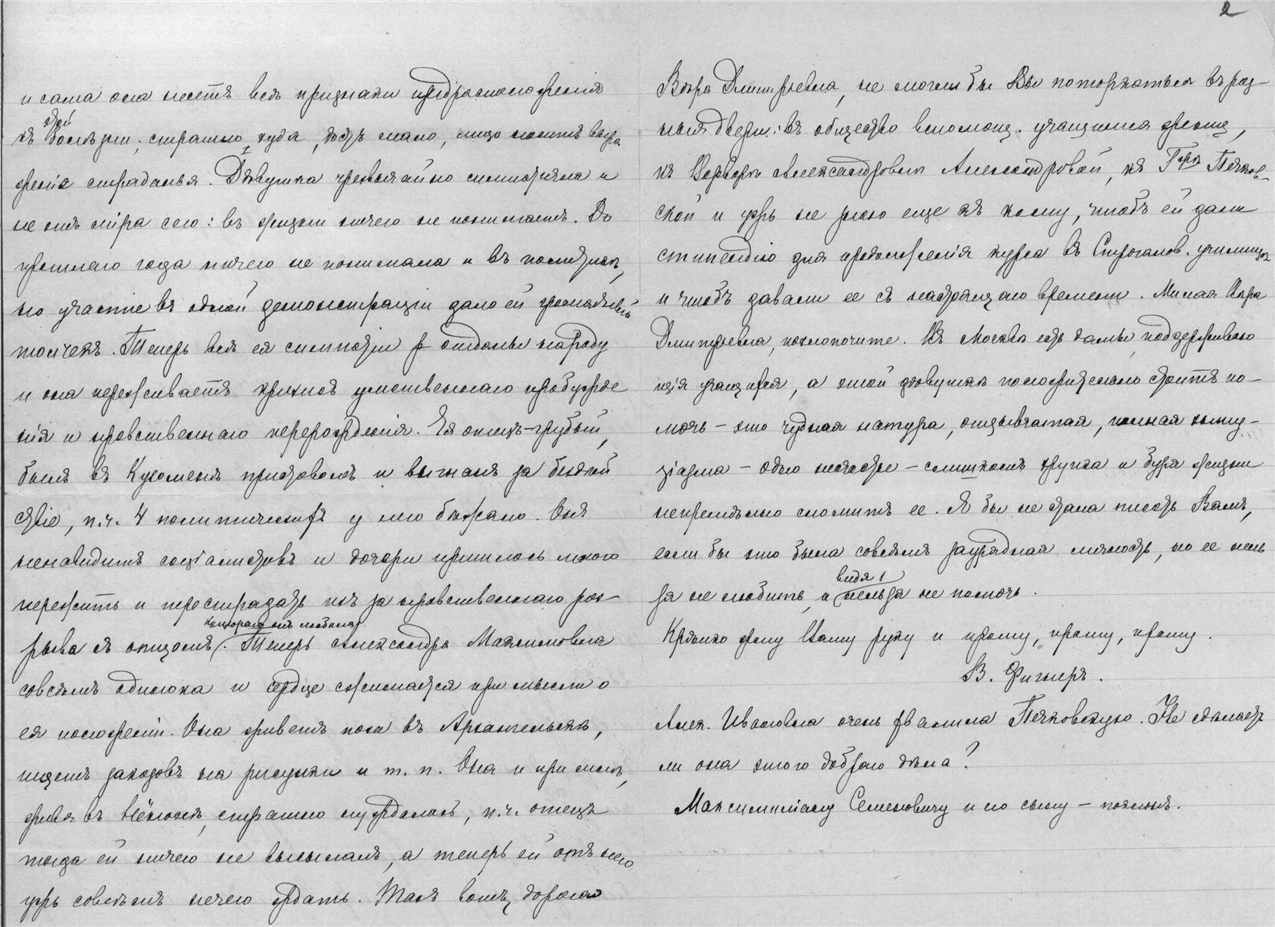 2
и сама она несетъ всѣ признаки предрасположенія
къ этой болѣзни; страшно худа, ѣстъ мало, лицо носитъ выра
женіе страданья. Дѣвушка чрезвычайно симпатична и
не отъ міра сего: въ жизни ничего не понимаетъ. До
прошлаго года ничего не понимала и въ политикѣ,
но участіе въ одной демонстраціи дало ей громадный
толчекъ. Теперь всѣ ея симпатіи отданы народу
и она переживаетъ кризисъ умственнаго пробужде
нія и нравственнаго перерожденія. Ея отецъ - грубый,
былъ въ приставомъ и выгнанъ за бездѣй
ствіе, п.ч. 4 политическихъ у него бѣжало. Онъ
ненавидитъ соціалистовъ и дочери пришлось много
пережить и перестрадать изъ за нравственнаго раз-
рыва съ отцомъ, котораго она любила. Теперь Александра Максимовна
совсѣмъ одинока и сердце сжимается при мысли о
ея положеніи. Она живетъ пока въ Архангельскѣ,
ищетъ заказовъ на рисунки и т. п. Она и при мнѣ,
живя въ Нёноксѣ, страшно нуждалась, п.ч. отецъ
тогда ей ничего не высылалъ, а теперь ей отъ него
ужъ совсѣмъ нечего ждать. Такъ вотъ, дорогая
Вѣра Дмитріевна, не могли бы Вы потолкаться въ раз
ныя двери: въ общество вспомощ. учащимся женщ.,
къ Варварѣ Алексѣевнѣ Александровой, къ Гжѣ Пѣчков-
ской и ужъ не знаю еще къ кому, чтобъ ей дали
стипендію для продолженія курса въ Строганов. училищѣ
и чтобъ давали ее съ настоящаго времени. Милая Вѣра
Дмитріевна, похлопочите. Въ Москвѣ есть дамы, поддерживаю
щія учащихся, а этой дѣвушкѣ положительно стоитъ по-
мочь - это чудная натура, отзывчатая, полная энту-
зіазма - одно несчастье - слишкомъ хрупка и буря жизни
непремѣнно сломитъ ее. Я бы не стала писать Вамъ,
если бы это была совсѣмъ заурядная личность, но ее нель
зя не любить, и видя, нельзя не помочь.
Крѣпко жму Вашу руку и прошу, прошу, прошу.
В. Фигнеръ.
Алек. Ивановна очень хвалила Пѣчковскую. Не сдѣлаетъ
ли она этого добраго дѣла?
Максимиліану Семеновичу и его сыну - поклонъ.